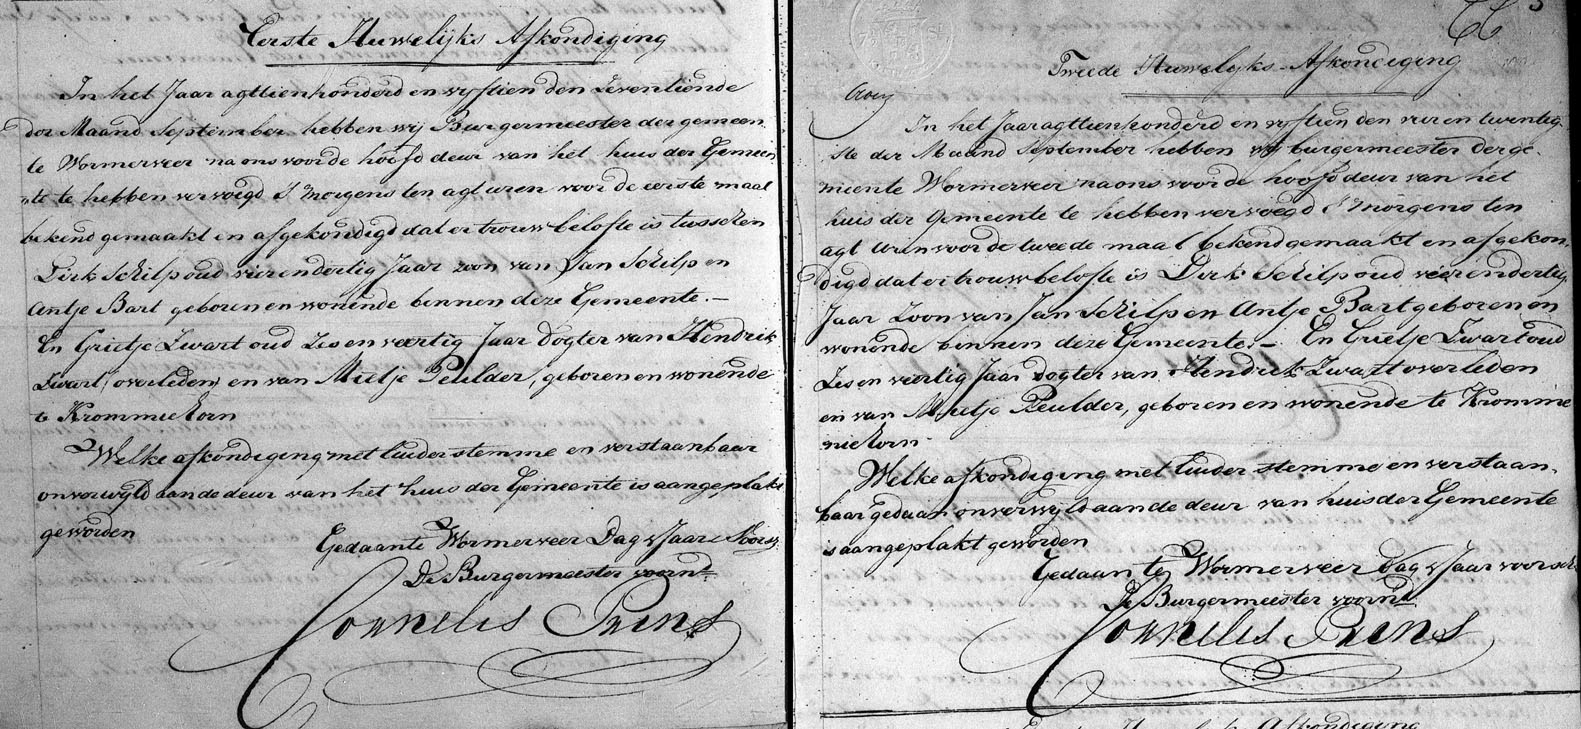 Eerste Huwelijks Afkondiging
In het Jaar agttienhonderd en vyftien den Zeventiende
der Maand September hebben wij Burgermeester der gemeen
te Wormerveer na ons voor de hoofd deur van het huis der Gemeen
te te hebben vervoegd S' morgens ten agt uren voor de eerste maal
bekend gemaakt en afgekondigd dat er trouwbelofte is tusschen
Dirk Schilp oud vier en dertig Jaar zoon van Jan Schilp en
Antje Bart geboren en wonende binnen deze Gemeente.—
En Grietje Zwart oud Zes en veertig Jaar dogter van Hendrik
Zwart (overleden) en van Mietje Peulder, geboren en wonende
te Krommiehorn
Welke afkondiging met luider stemme en verstaanbaar
onverwyld aan de deur van het huis der Gemeente is aangeplakt
geworden
Gedaan te Wormerveer Dag & Jaar
De Burgermeester voornd.
Cornelis Prins
Tweede Huwelyks Afkondiging
In het Jaar agttienhonderd en vyftien den vier en twentig
ste der Maand September hebben wy burgermeester der ge
meente Wormerveer na ons voor de hoofd deur van het
huis der Gemeente te hebben vervoegd S' morgens ten
agt uren voor de tweede maal bekend gemaakt en afgekon
digd dat er trouwbelofte is Dirk Schilp oud vier en dertig
Jaar Zoon van Jan Schilp en Antje Bart geboren en
wonende binnen deze Gemeente.— En Grietje Zwart oud
Zes en veertig Jaar dogter van Hendrik Zwart overleden
en van Mietje Peulder, geboren en wonende te Kromme
niehorn
Welke afkondiging met luider stemme en verstaan
baar gedaan onverwyld aan de deur van huis der Gemeente
is aangeplakt geworden
Gedaan te Wormerveer Dag & Jaar voorsch
De Burgermeester voornd
Cornelis Prins
Huwelyks Afkondiging